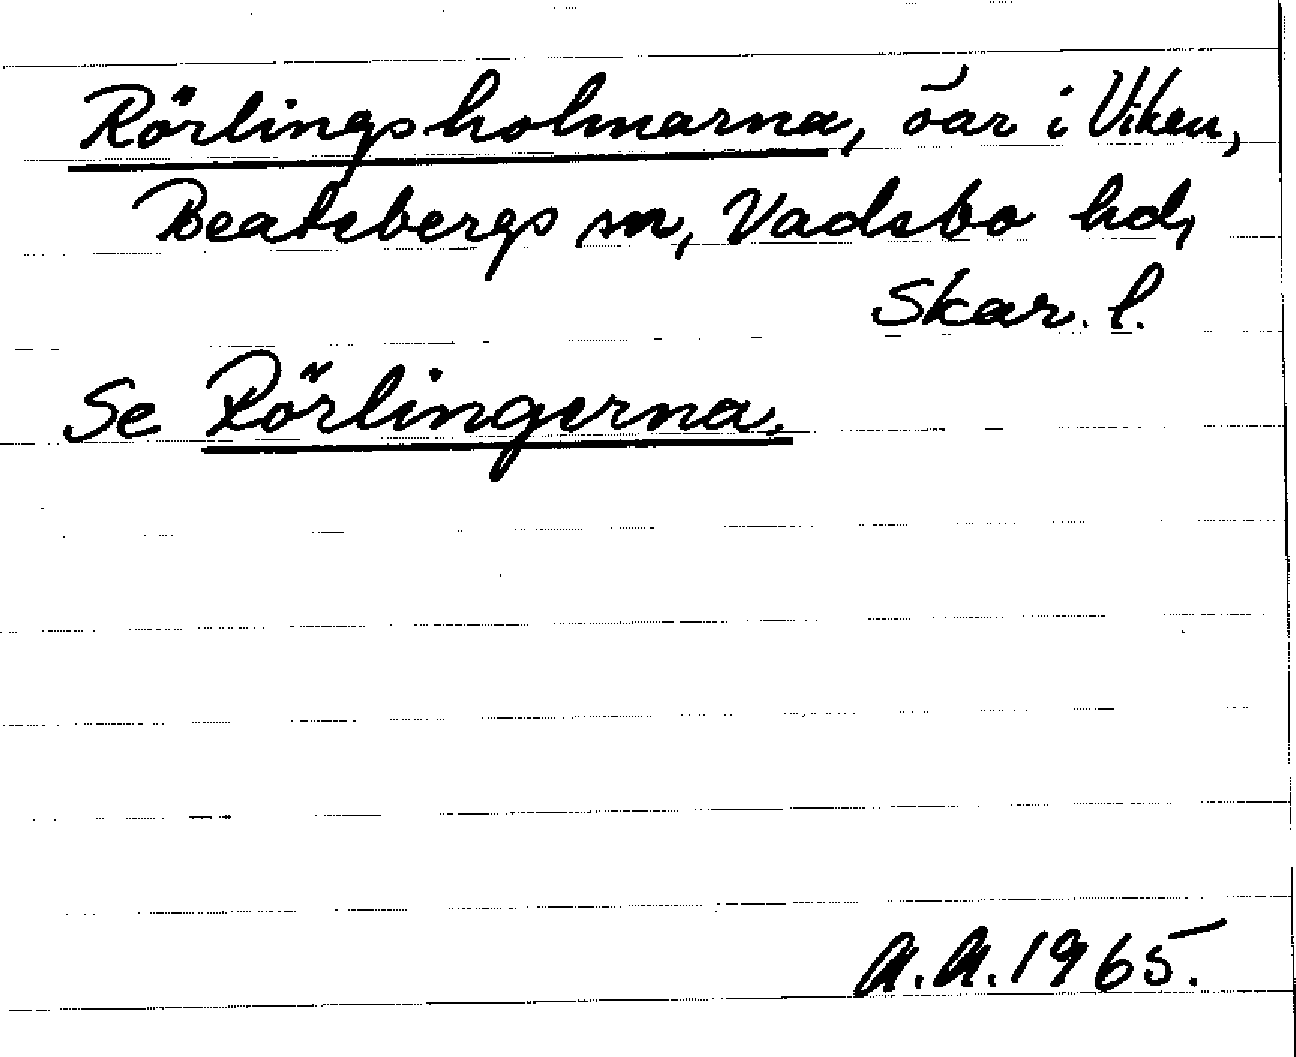 Rörlingsholmarna, öar i Viken,
Beatebergs sn, Vadsbo hd,
Skar. l.
Se Rörlingerna.
A.A. 1965.